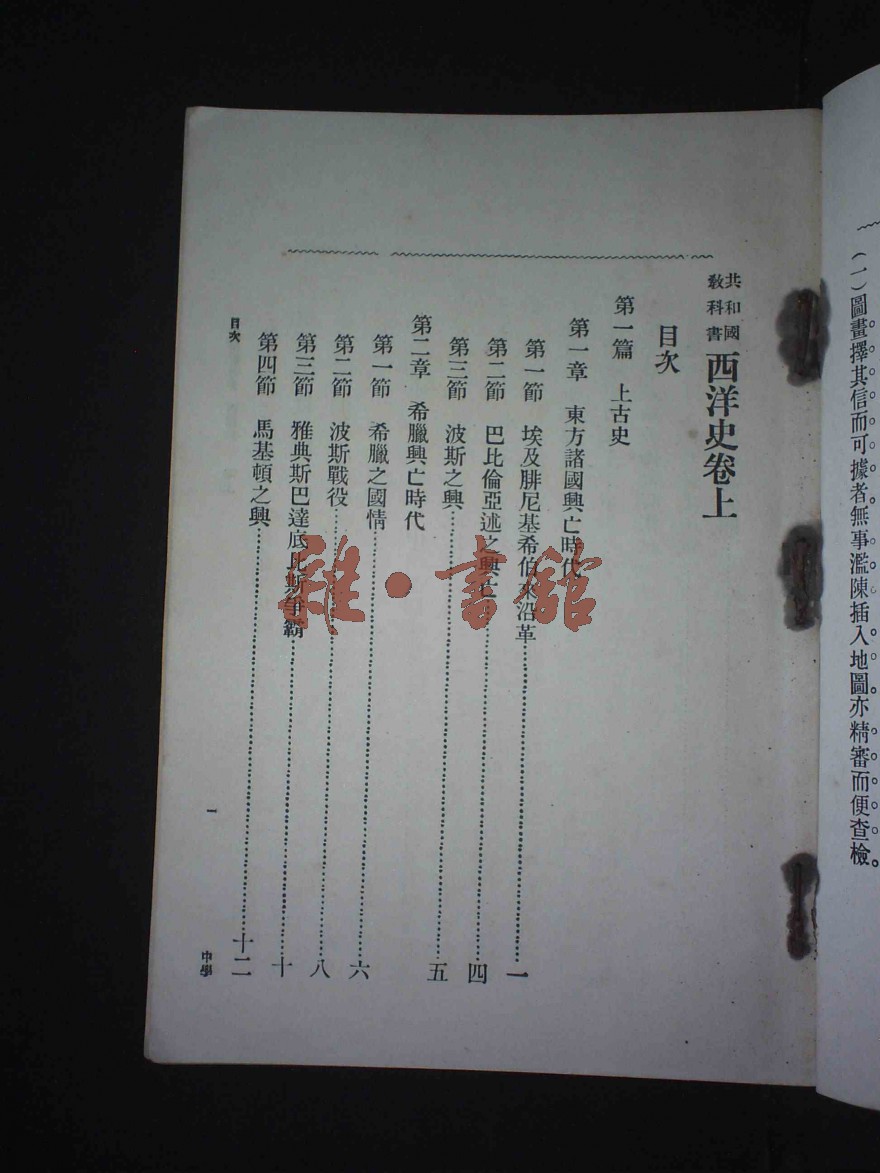 (一)圖畫擇其信而可據者無事濫陳插入地圖亦精審而便查檢。
共和國
教科書
西洋史卷上
目次
第一篇 上古史
第一章 東方諸國興亡時代
第一節 埃及腓尼基希伯來沿革……一
第二節 巴比倫亞述之興亡……四
第三節 波斯之興……五
第二章 希臘興亡時代
第一節 希臘之國情……六
第二節 波斯戰役……八
第三節 雅典斯巴達底比斯爭霸……十
第四節 馬基頓之興……十二
目次
一
中學
雜·書館